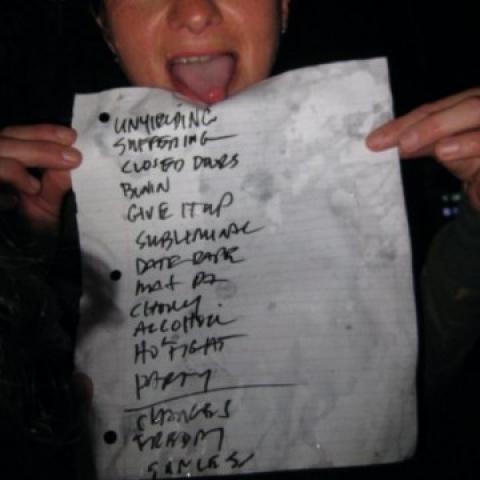 UNYIELDING
SUFFERING
CLOSED DOORS
BURN
GIVE IT UP
SUBLIMINAL
DATE RAPE
ALCOHOL
HO FIGHT
PARTY
CHANGES
FREEDM